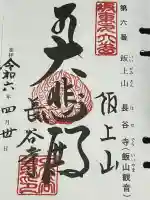 第六番 飯上山 長谷寺(飯山観音)
坂東第六番
飯上山
大悲殿
長谷寺
令和六年四月